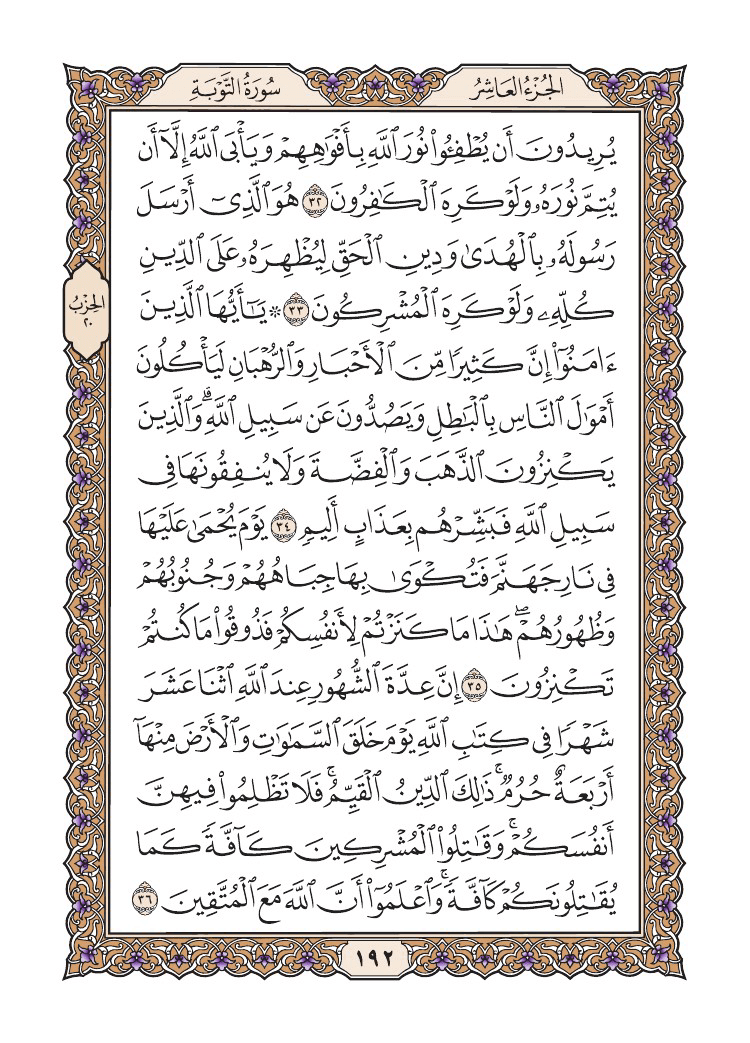 الجُزْءُ العَاشِرُ
سُورَةُ التَّوْبَةِ
يُرِيدُونَ أَن يُطْفِـُٔوا۟ نُورَ ٱللَّهِ بِأَفْوَٰهِهِمْ وَيَأْبَى ٱللَّهُ إِلَّآ أَن
يُتِمَّ نُورَهُۥ وَلَوْ كَرِهَ ٱلْكَٰفِرُونَ ٣٢ هُوَ ٱلَّذِىٓ أَرْسَلَ
رَسُولَهُۥ بِٱلْهُدَىٰ وَدِينِ ٱلْحَقِّ لِيُظْهِرَهُۥ عَلَى ٱلدِّينِ
كُلِّهِۦ وَلَوْ كَرِهَ ٱلْمُشْرِكُونَ ٣٣ * يَٰٓأَيُّهَا ٱلَّذِينَ
ءَامَنُوٓا۟ إِنَّ كَثِيرًا مِّنَ ٱلْأَحْبَارِ وَٱلرُّهْبَانِ لَيَأْكُلُونَ
أَمْوَٰلَ ٱلنَّاسِ بِٱلْبَٰطِلِ وَيَصُدُّونَ عَن سَبِيلِ ٱللَّهِ ۗ وَٱلَّذِينَ
يَكْنِزُونَ ٱلذَّهَبَ وَٱلْفِضَّةَ وَلَا يُنفِقُونَهَا فِى
سَبِيلِ ٱللَّهِ فَبَشِّرْهُم بِعَذَابٍ أَلِيمٍ ٣٤ يَوْمَ يُحْمَىٰ عَلَيْهَا
فِى نَارِ جَهَنَّمَ فَتُكْوَىٰ بِهَا جِبَاهُهُمْ وَجُنُوبُهُمْ
وَظُهُورُهُمْ ۖ هَٰذَا مَا كَنَزْتُمْ لِأَنفُسِكُمْ فَذُوقُوا۟ مَا كُنتُمْ
تَكْنِزُونَ ٣٥ إِنَّ عِدَّةَ ٱلشُّهُورِ عِندَ ٱللَّهِ ٱثْنَا عَشَرَ
شَهْرًا فِى كِتَٰبِ ٱللَّهِ يَوْمَ خَلَقَ ٱلسَّمَٰوَٰتِ وَٱلْأَرْضَ مِنْهَآ
أَرْبَعَةٌ حُرُمٌ ۚ ذَٰلِكَ ٱلدِّينُ ٱلْقَيِّمُ ۚ فَلَا تَظْلِمُوا۟ فِيهِنَّ
أَنفُسَكُمْ ۚ وَقَٰتِلُوا۟ ٱلْمُشْرِكِينَ كَآفَّةً كَمَا
يُقَٰتِلُونَكُمْ كَآفَّةً ۚ وَٱعْلَمُوٓا۟ أَنَّ ٱللَّهَ مَعَ ٱلْمُتَّقِينَ ٣٦
الحِزْبُ
٢٠
١٩٢